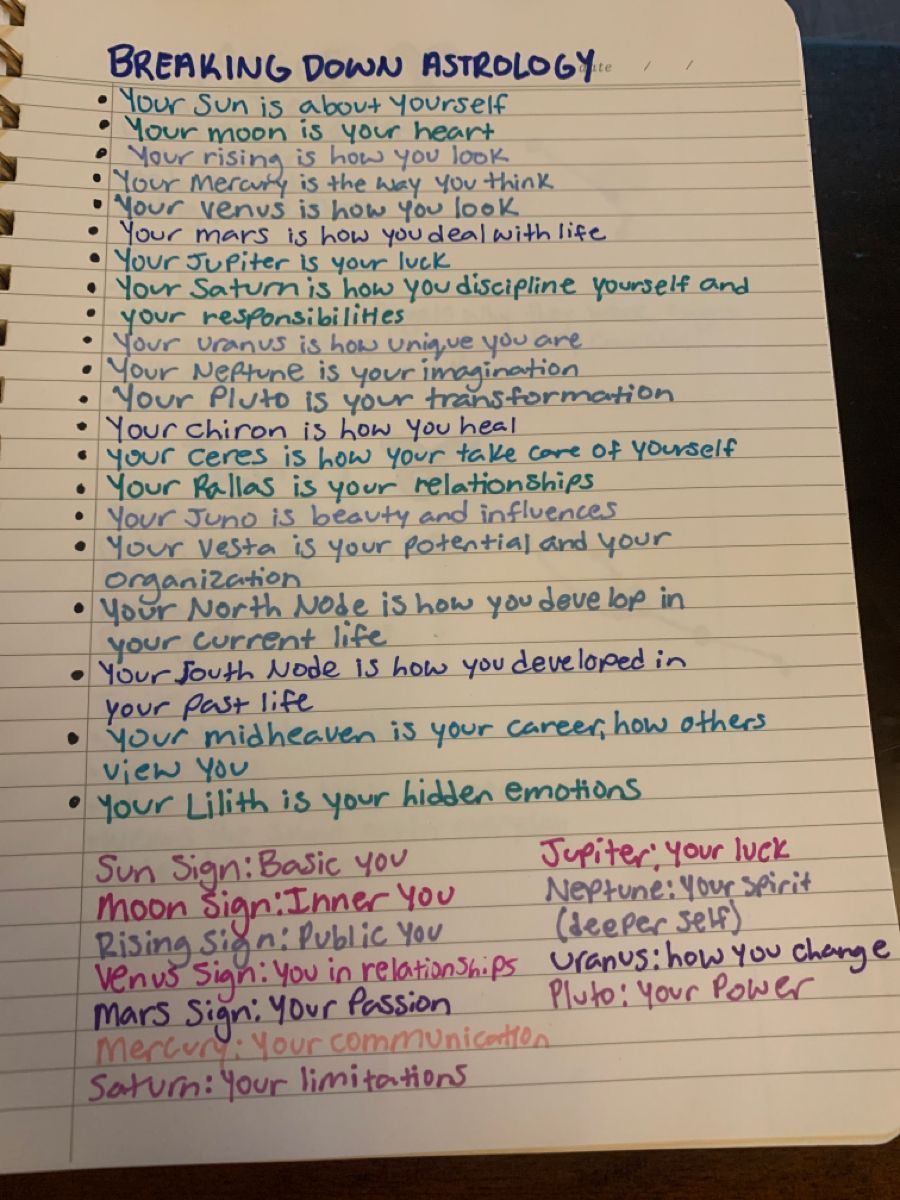 BREAKING DOWN ASTROLOGY
date / /
• Your Sun is about yourself
• Your moon is your heart
• Your rising is how you look
• Your Mercury is the way you think
• Your venus is how you look
• Your mars is how you deal with life
• Your Jupiter is your luck
• Your Saturn is how you discipline yourself and
• your responsibilities
• Your uranus is how unique you are
• Your Neptune is your imagination
• Your Pluto is your transformation
• Your chiron is how you heal
• your ceres is how your take care of yourself
• Your Pallas is your relationships
• Your Juno is beauty and influences
• Your Vesta is your potential and your
organization
• Your North Node is how you develop in
your current life
• Your South Node is how you developed in
your past life
• your midheaven is your career, how others
view you
• Your Lilith is your hidden emotions
Sun Sign: Basic you
Moon Sign: Inner You
Rising Sign: Public You
Venus Sign: You in relationships
Mars Sign: Your Passion
Mercury: Your communication
Saturn: Your limitations
Jupiter: Your luck
Neptune: Your Spirit
(deeper self)
Uranus: how you change
Pluto: Your Power